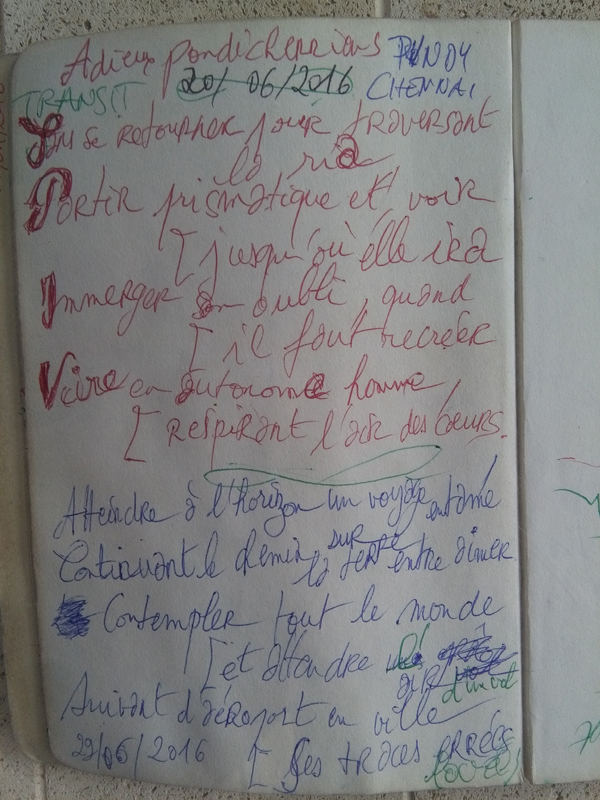 Adieux pondicherriens PUNDY
TRANSIT 20/06/2016 CHENNAI
se retourner pour traversant
la
Partir prismatique et voir
[ jusqu'où elle ira
Immerger son oubli, quand
[ il faut recréer
en autonome homme,
[ respirant l'air des cœurs.
Atteindre à l'horizon un voyage entame
Continuant le chemin sur la terre entre aimer
Contempler tout le monde
[ et attendre
air d'un vol
Suivant d'aéroport en ville
29/06/2016 [ Les traces errées